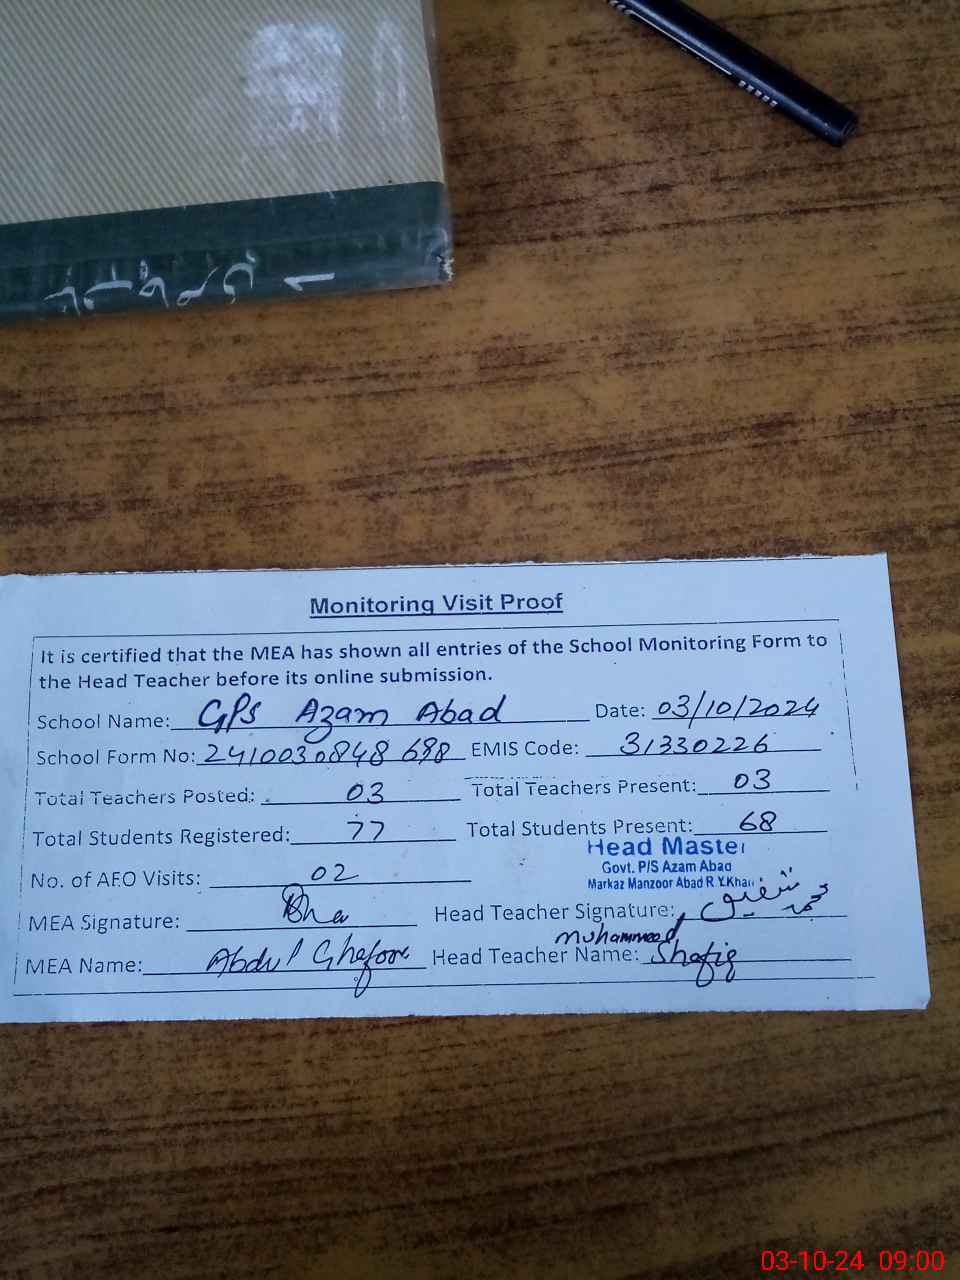 Monitoring Visit Proof
It is certified that the MEA has shown all entries of the School Monitoring Form to
the Head Teacher before its online submission.
School Name: GPS Azam Abad Date: 03/10/2024
School Form No: 2410030848 698 EMIS Code: 31330226
Total Teachers Posted: 03 Total Teachers Present: 03
Total Students Registered: 77 Total Students Present: 68
Head Master
Govt. P/S Azam Abad
Markaz Manzoor Abad R.Y.Khan
No. of AEO Visits: 02
MEA Signature: Head Teacher Signature: محمد شفیق
MEA Name: Abdul Ghafoor Head Teacher Name: Muhammad Shafiq
03-10-24 09:00